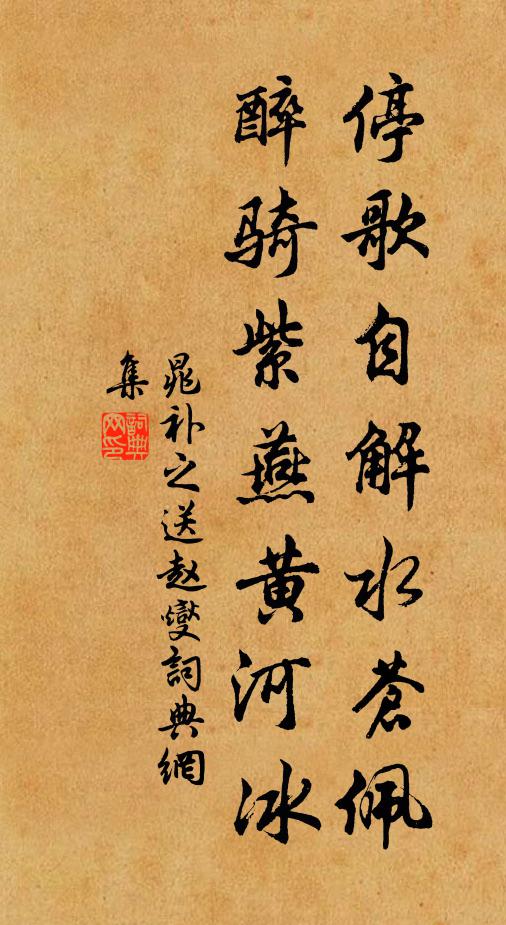 停歌自解水苍佩
醉骑紫燕黄河冰
晁补之送赵燮词典网
集
词典
网印